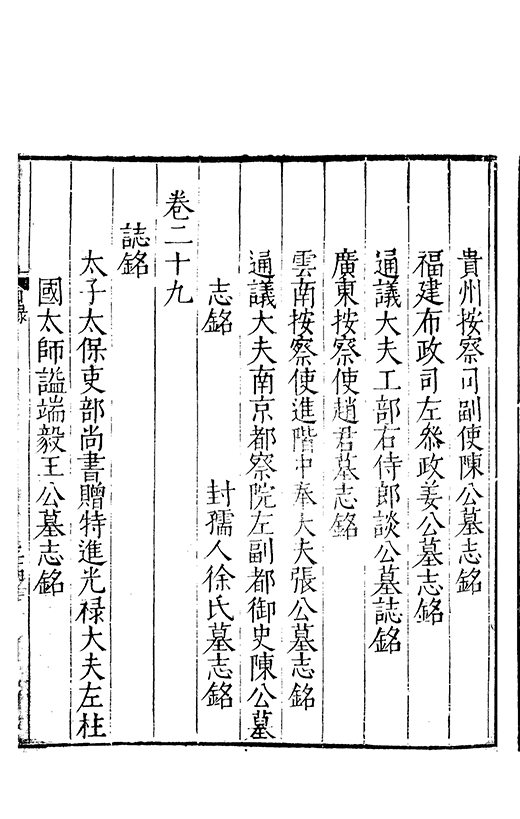 貴州按察司副使陳公墓志銘
福建布政司左叅政姜公墓志銘
通議大夫工部右侍郎談公墓誌銘
廣東按察使趙君墓志銘
雲南按察使進階中奉大夫張公墓志銘
通議大夫南京都察院左副都御史陳公墓
志銘　封孺人徐氏墓志銘
卷二十九
誌銘
太子太保吏部尚書贈特進光祿大夫左柱
國太師諡端毅王公墓志銘
目錄